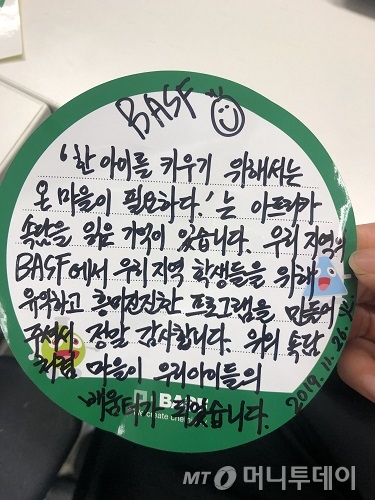 BASF
'한 아이를 키우기 위해서는
온 마을이 필요하다.'는 아프리카
속담을 읽은 기억이 있습니다. 우리 지역의
BASF에서 우리 지역 학생들을 위해
유익하고 흥미진진한 프로그램을 만들어
주셔서 정말 감사합니다. 위의 속담
처럼 마을이 우리아이들의
배움터가 되었습니다.
2019. 11. 26.
BASF
We create
MT 머니투데이